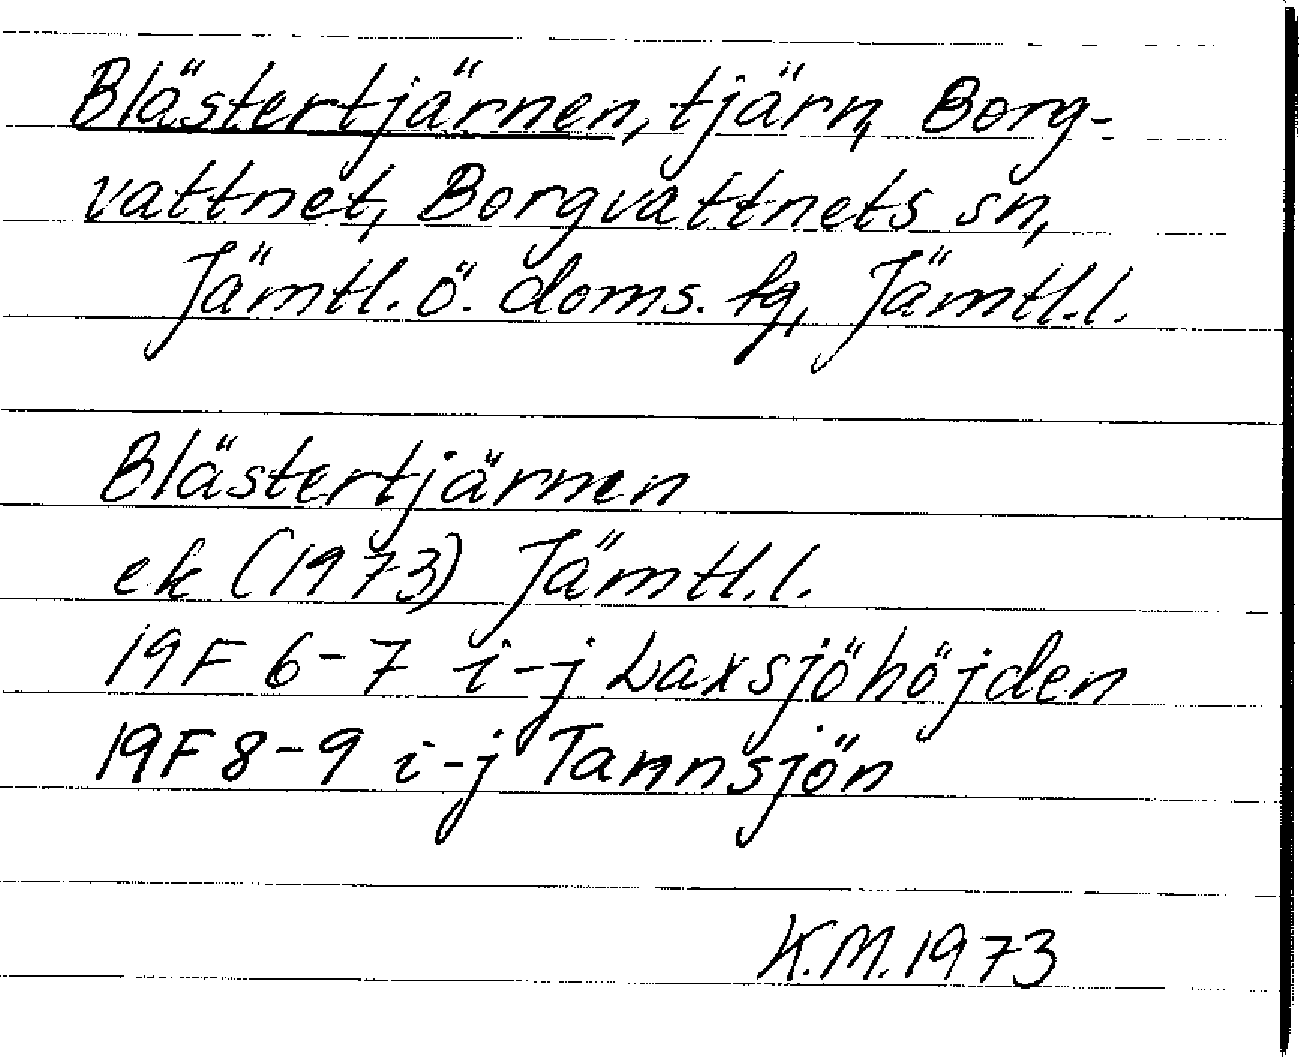 Blästertjärnen, tjärn, Borg-
vattnet, Borgvattnets sn,
Jämtl. ö. doms. tg, Jämtl.l.
Blästertjärnen
ek (1973) Jämtl.l.
19F 6-7 i-j Laxsjöhöjden
19F 8-9 i-j Tannsjön
K.M. 1973